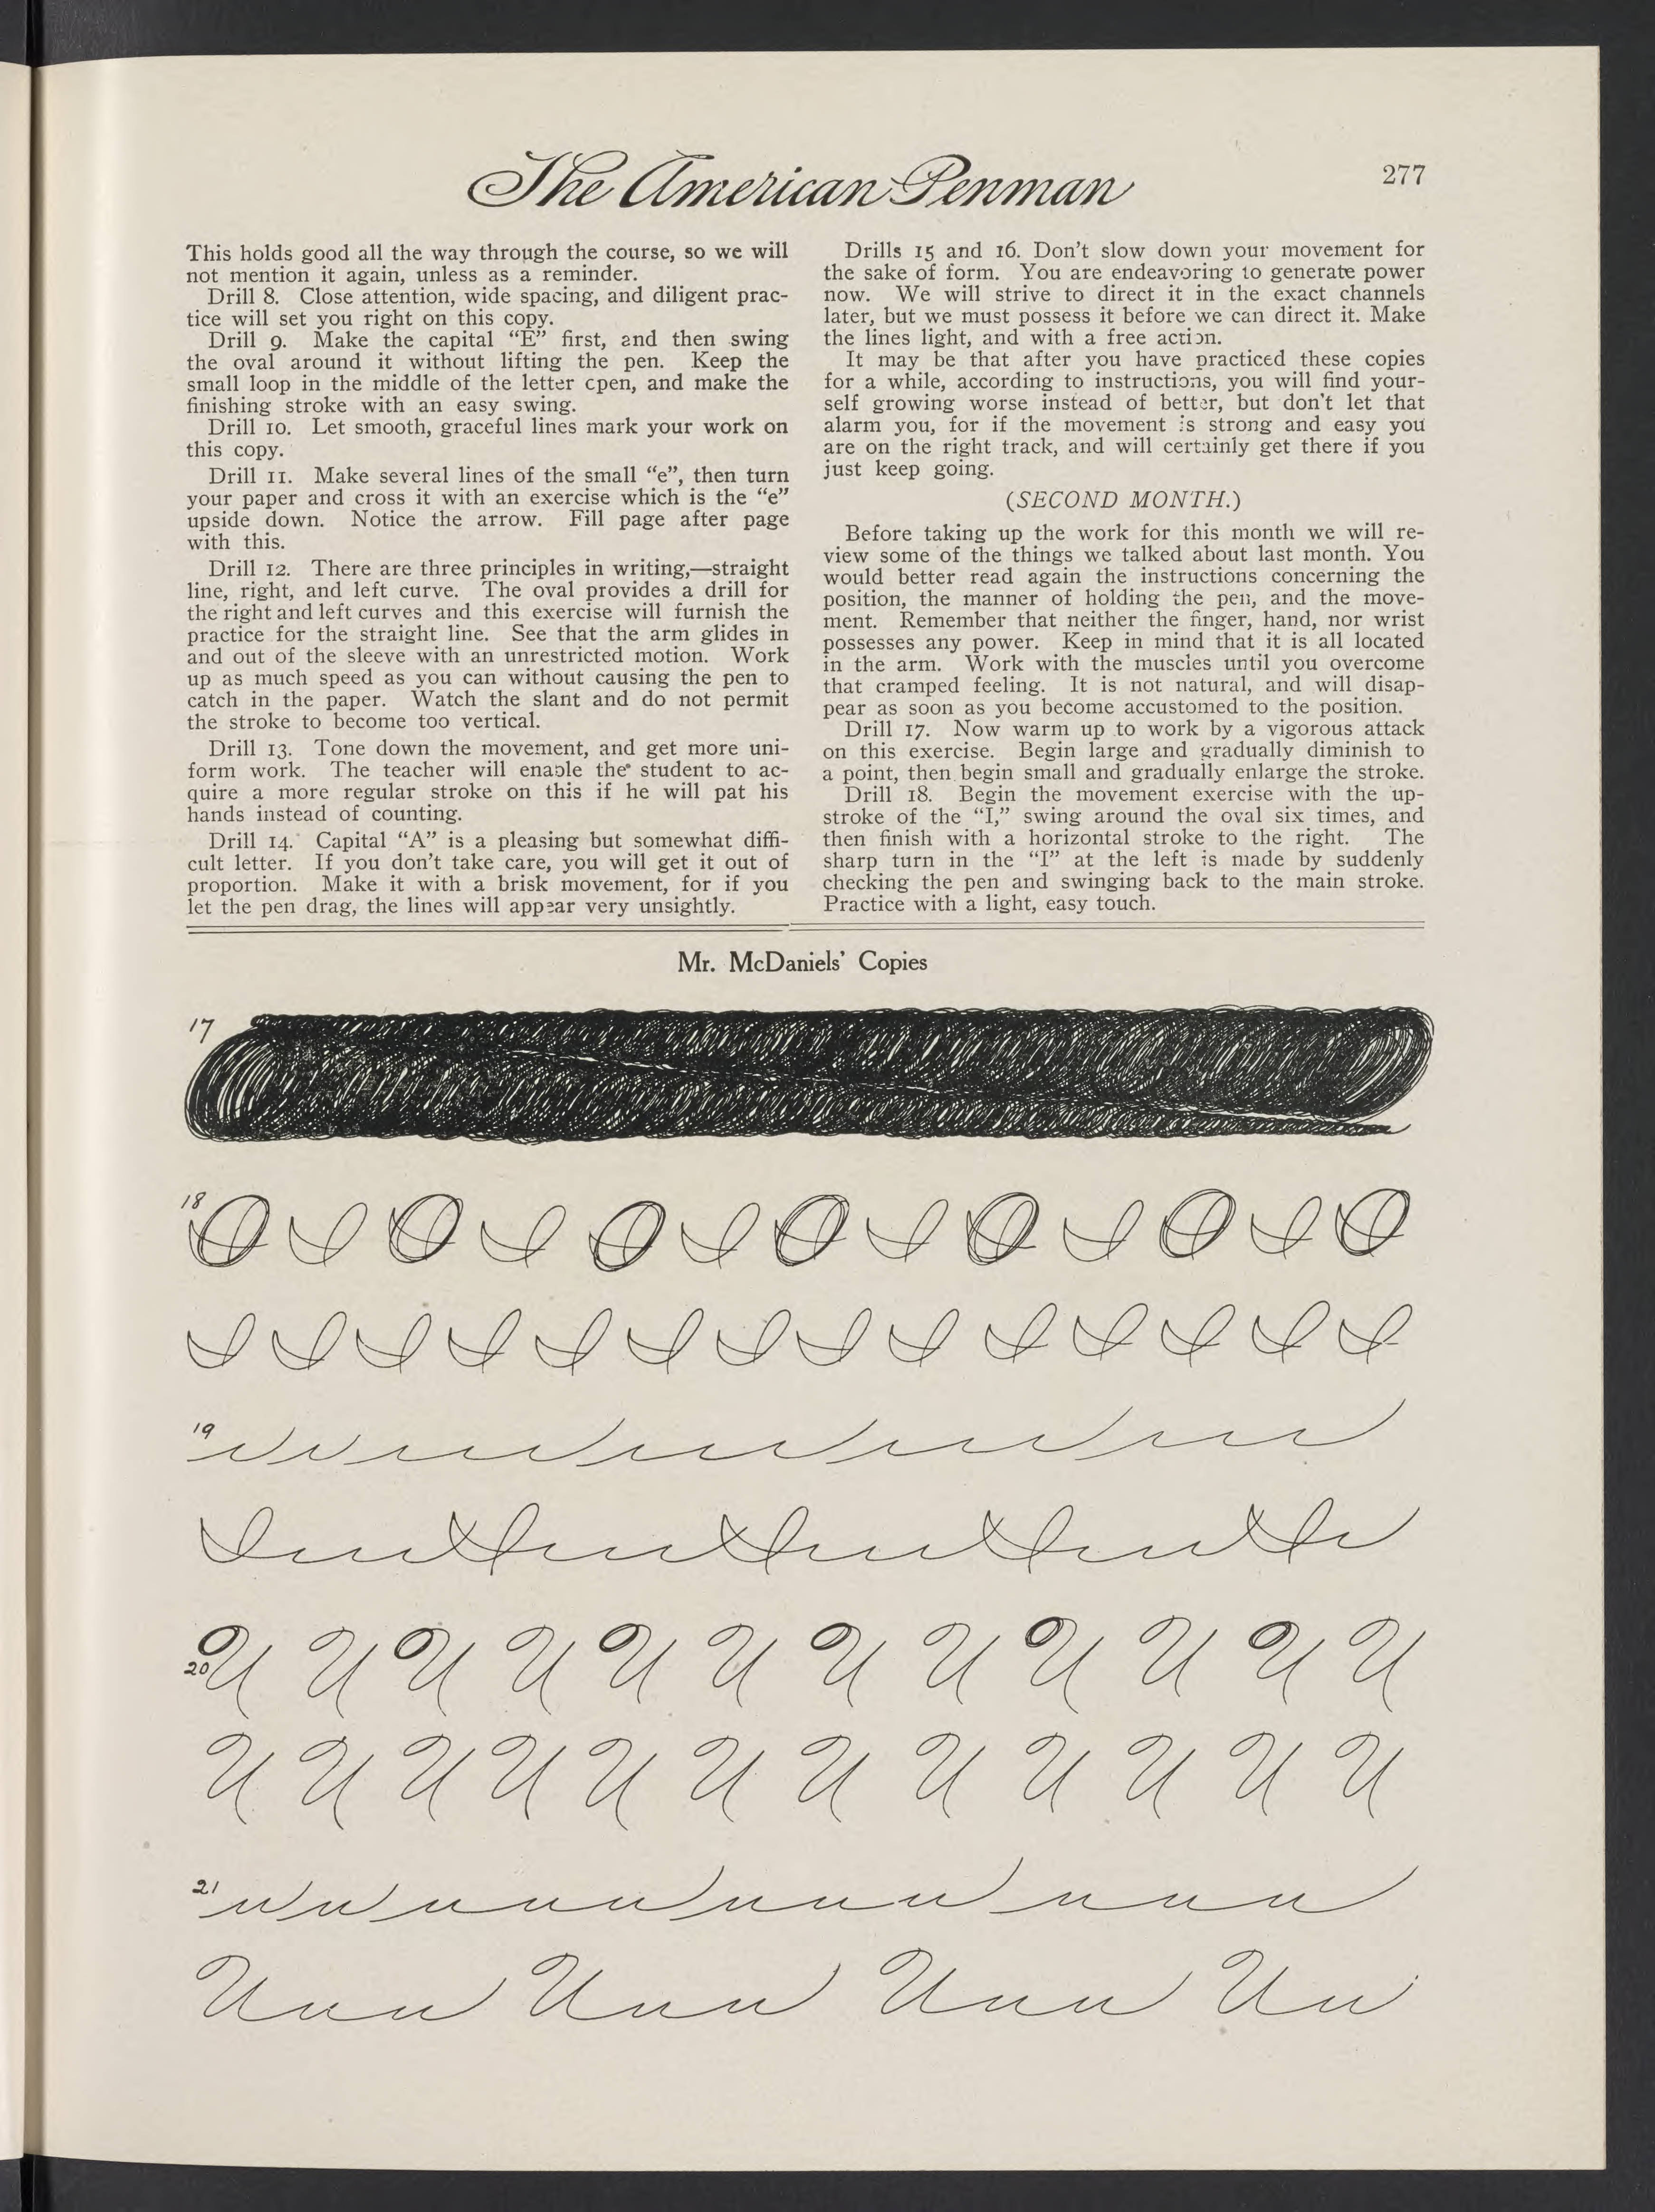 The American Penman
277
This holds good all the way through the course, so we will
not mention it again, unless as a reminder.
Drill 8. Close attention, wide spacing, and diligent prac-
tice will set you right on this copy.
Drill 9. Make the capital “E” first, and then swing
the oval around it without lifting the pen. Keep the
small loop in the middle of the letter open, and make the
finishing stroke with an easy swing.
Drill 10. Let smooth, graceful lines mark your work on
this copy.
Drill 11. Make several lines of the small “e”, then turn
your paper and cross it with an exercise which is the “e”
upside down. Notice the arrow. Fill page after page
with this.
Drill 12. There are three principles in writing,—straight
line, right, and left curve. The oval provides a drill for
the right and left curves and this exercise will furnish the
practice for the straight line. See that the arm glides in
and out of the sleeve with an unrestricted motion. Work
up as much speed as you can without causing the pen to
catch in the paper. Watch the slant and do not permit
the stroke to become too vertical.
Drill 13. Tone down the movement, and get more uni-
form work. The teacher will enable the student to ac-
quire a more regular stroke on this if he will pat his
hands instead of counting.
Drill 14. Capital “A” is a pleasing but somewhat diffi-
cult letter. If you don’t take care, you will get it out of
proportion. Make it with a brisk movement, for if you
let the pen drag, the lines will appear very unsightly.
Drills 15 and 16. Don’t slow down your movement for
the sake of form. You are endeavoring to generate power
now. We will strive to direct it in the exact channels
later, but we must possess it before we can direct it. Make
the lines light, and with a free action.
It may be that after you have practiced these copies
for a while, according to instructions, you will find your-
self growing worse instead of better, but don’t let that
alarm you, for if the movement is strong and easy you
are on the right track, and will certainly get there if you
just keep going.
(SECOND MONTH.)
Before taking up the work for this month we will re-
view some of the things we talked about last month. You
would better read again the instructions concerning the
position, the manner of holding the pen, and the move-
ment. Remember that neither the finger, hand, nor wrist
possesses any power. Keep in mind that it is all located
in the arm. Work with the muscles until you overcome
that cramped feeling. It is not natural, and will disap-
pear as soon as you become accustomed to the position.
Drill 17. Now warm up to work by a vigorous attack
on this exercise. Begin large and gradually diminish to
a point, then begin small and gradually enlarge the stroke.
Drill 18. Begin the movement exercise with the up-
stroke of the “I,” swing around the oval six times, and
then finish with a horizontal stroke to the right. The
sharp turn in the “I” at the left is made by suddenly
checking the pen and swinging back to the main stroke.
Practice with a light, easy touch.
Mr. McDaniels’ Copies
17
18
19
20
21